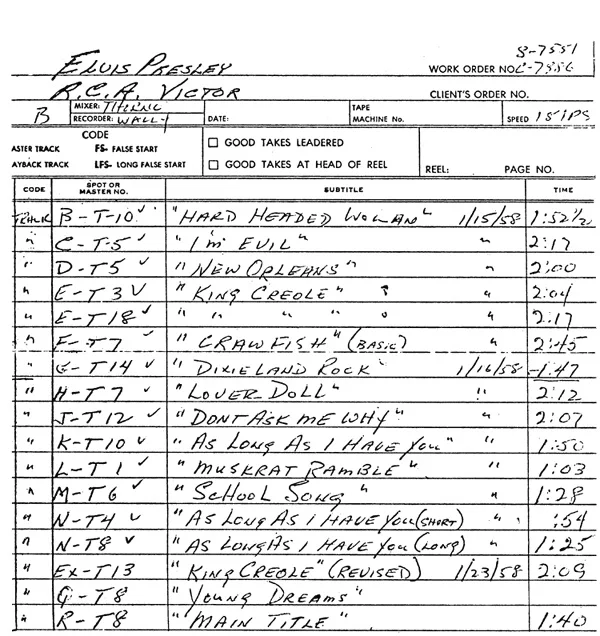 8-7551
ELVIS PRESLEY WORK ORDER NO. C-7556
R.C.A. VICTOR CLIENT'S ORDER NO.
B MIXER: THORNE TAPE
RECORDER: WALLY DATE: MACHINE No. SPEED 15 IPS
CODE
ASTER TRACK FS- FALSE START GOOD TAKES LEADERED
AYBACK TRACK LFS- LONG FALSE START GOOD TAKES AT HEAD OF REEL REEL: PAGE NO.
CODE SPOT OR MASTER NO. SUBTITLE TIME
B-T-10 ✓ "HARD HEADED WOMAN" 1/15/58 1:52 1/2
" C-T-5 ✓ "I'M EVIL" " 2:17
" D-T5 ✓ "NEW ORLEANS" " 2:00
" E-T3 ✓ "KING CREOLE" " 2:04
" E-T18 ✓ " " " " " 2:17
" F-T7 ✓ "CRAWFISH" (BASIC) " 2:45
" G-T14 ✓ "DIXIELAND ROCK" 1/16/58 1:47
" H-T7 ✓ "LOVER DOLL" " 2:12
" J-T12 ✓ "DONT ASK ME WHY" " 2:07
" K-T10 ✓ "AS LONG AS I HAVE YOU" " 1:50
" L-T1 ✓ "MUSKRAT RAMBLE" " 1:03
" M-T6 ✓ "SCHOOL SONG" " 1:28
" N-T4 ✓ "AS LONG AS I HAVE YOU (SHORT) " :54
" N-T8 ✓ "AS LONG AS I HAVE YOU (LONG) " 1:25
" EX-T13 "KING CREOLE" (REVISED) 1/23/58 2:09
" G-T8 "YOUNG DREAMS"
" R-T8 "MAIN TITLE" 1:40